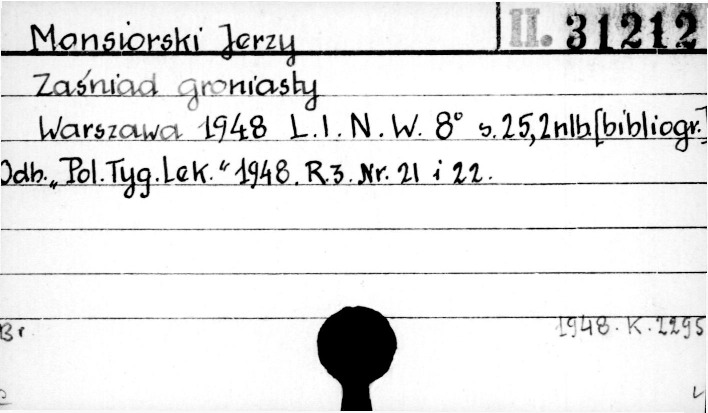 Monsiorski Jerzy II. 31212
Zaśniad groniasty
Warszawa 1948 L.I.N.W. 8° s.25,2nlb.[bibliogr.]
Odb. „Pol.Tyg.Lek." 1948. R.3. Nr. 21 i 22.
Br. 1948.K.2295